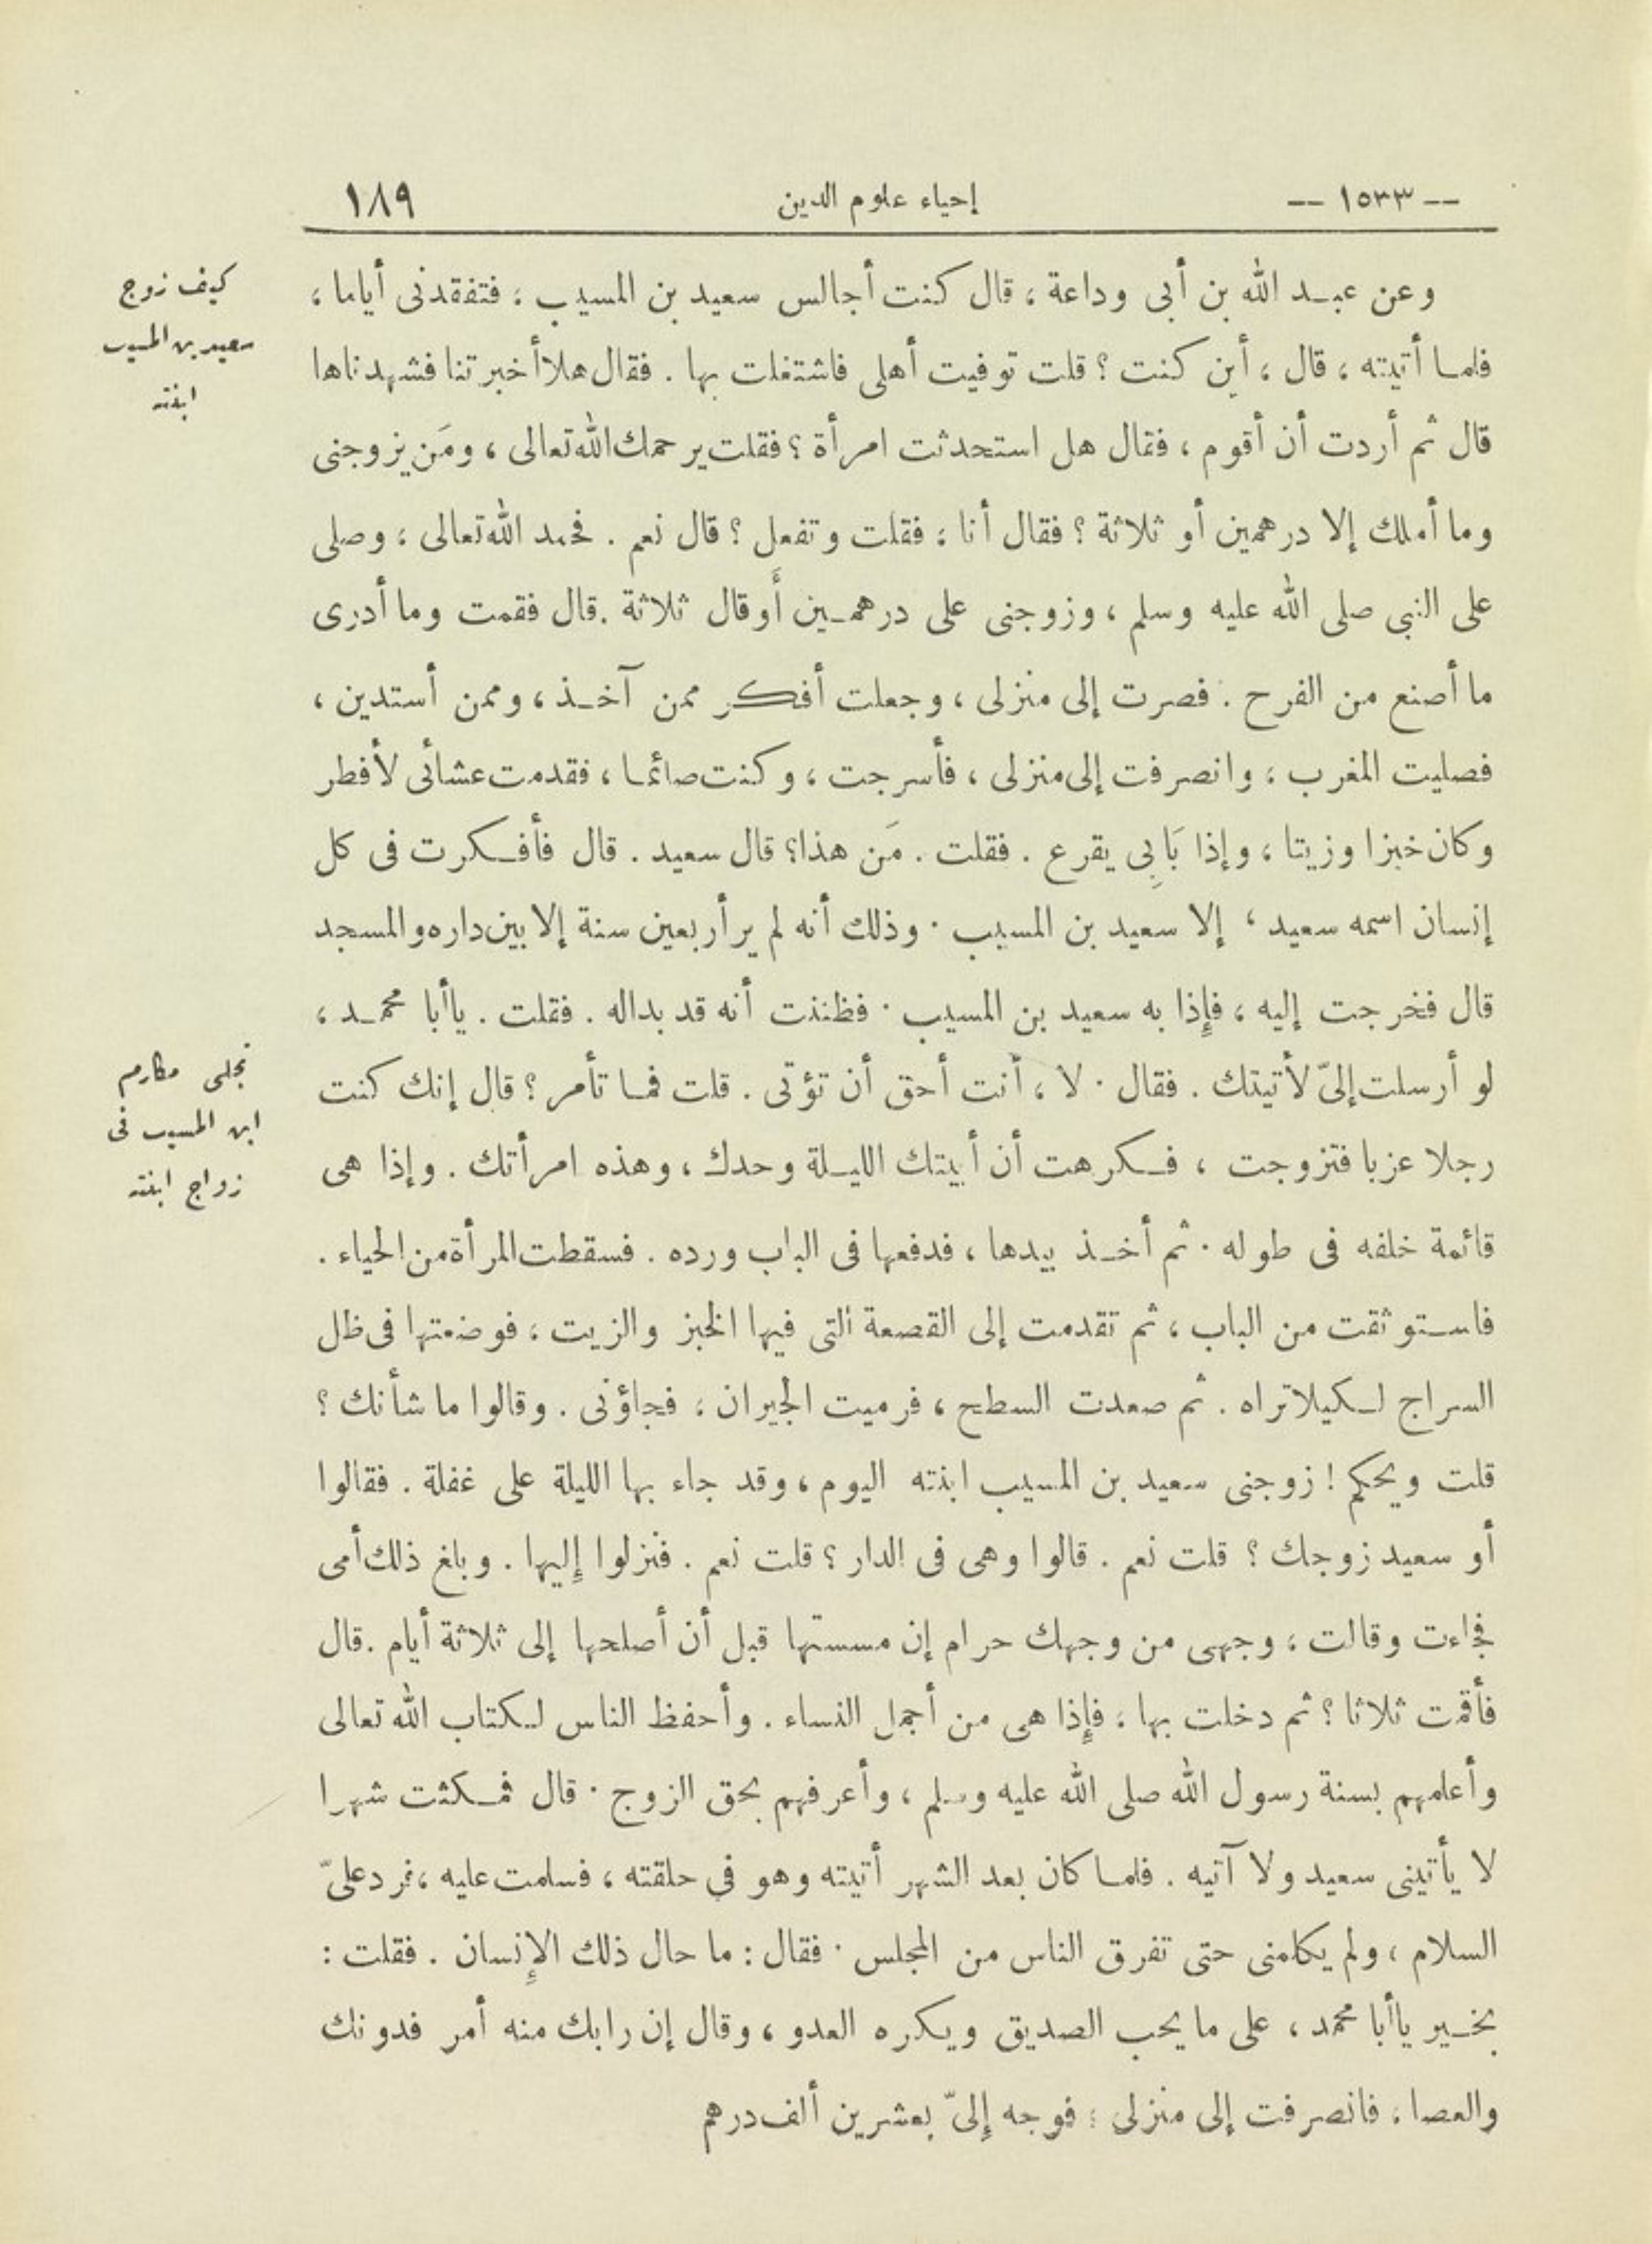 -- ١٥٣٣ -- إحياء علوم الدين ١٨٩
كيف زوج
سعيد بن المسيب
ابنته
وعن عبد الله بن أبى وداعة ، قال كنت أجالس سعيد بن المسيب ، فتفقدنى أياما ،
فلما أتيته ، قال ، أين كنت ؟ قلت توفيت أهلى فاشتغلت بها . فقال هلا أخبرتنا فشهدناها
قال ثم أردت أن أقوم ، فقال هل استحدثت امرأة ؟ فقلت يرحمك الله تعالى ، ومَن يزوجنى
وما أملك إلا درهمين أو ثلاثة ؟ فقال أنا ، فقلت وتفعل ؟ قال نعم . فحمد الله تعالى ، وصلى
على النبى صلى الله عليه وسلم ، وزوجنى على درهمين أَو قال ثلاثة . قال فقمت وما أدرى
ما أصنع من الفرح . فصرت إلى منزلى ، وجعلت أفكر ممن آخذ ، وممن أستدين ،
فصليت المغرب ، وانصرفت إلى منزلى ، فأسرجت ، وكنت صائما ، فقدمت عشائى لأفطر
وكان خبزا وزيتا ، وإذا بَابِى يقرع . فقلت . مَن هذا؟ قال سعيد . قال فأفكرت فى كل
إنسان اسمه سعيد ، إلا سعيد بن المسيب . وذلك أنه لم ير أربعين سنة إلا بين داره والمسجد
قال فخرجت إليه ، فإذا به سعيد بن المسيب . فظننت أنه قد بداله . فقلت . ياأبا محمد ،
لو أرسلت إلىّ لأتيتك . فقال . لا ، أنت أحق أن تؤتى . قلت فما تأمر ؟ قال إنك كنت
رجلا عزبا فتزوجت ، فكرهت أن أبيتك الليلة وحدك ، وهذه امرأتك . وإذا هى
قائمة خلفه فى طوله . ثم أخذ بيدها ، فدفعها فى الباب ورده . فسقطت المرأة من الحياء .
فاستوثقت من الباب ، ثم تقدمت إلى القصعة التى فيها الخبز والزيت ، فوضعتها فى ظل
السراج لكيلا تراه . ثم صعدت السطح ، فرميت الجيران ، فجاؤنى . وقالوا ما شأنك ؟
قلت ويحكم ! زوجنى سعيد بن المسيب ابنته اليوم ، وقد جاء بها الليلة على غفلة . فقالوا
أو سعيد زوجك ؟ قلت نعم . قالوا وهى فى الدار ؟ قلت نعم . فنزلوا إليها . وبلغ ذلك أمى
فجاءت وقالت ، وجهى من وجهك حرام إن مسستها قبل أن أصلحها إلى ثلاثة أيام . قال
فأقمت ثلاثا ؟ ثم دخلت بها ، فإذا هى من أجمل النساء . وأحفظ الناس لكتاب الله تعالى
وأعلمهم بسنة رسول الله صلى الله عليه وسلم ، وأعرفهم بحق الزوج . قال فمكثت شهرا
لا يأتينى سعيد ولا آتيه . فلما كان بعد الشهر أتيته وهو فى حلقته ، فسلمت عليه ، فرد علىّ
السلام ، ولم يكلمنى حتى تفرق الناس من المجلس . فقال : ما حال ذلك الإنسان . فقلت :
بخير ياأبا محمد ، على ما يحب الصديق ويكره العدو ، وقال إن رابك منه أمر فدونك
والعصا ، فانصرفت إلى منزلى ، فوجه إلىّ بعشرين ألف درهم
تجلى مكارم
ابن المسيب فى
زواج ابنته